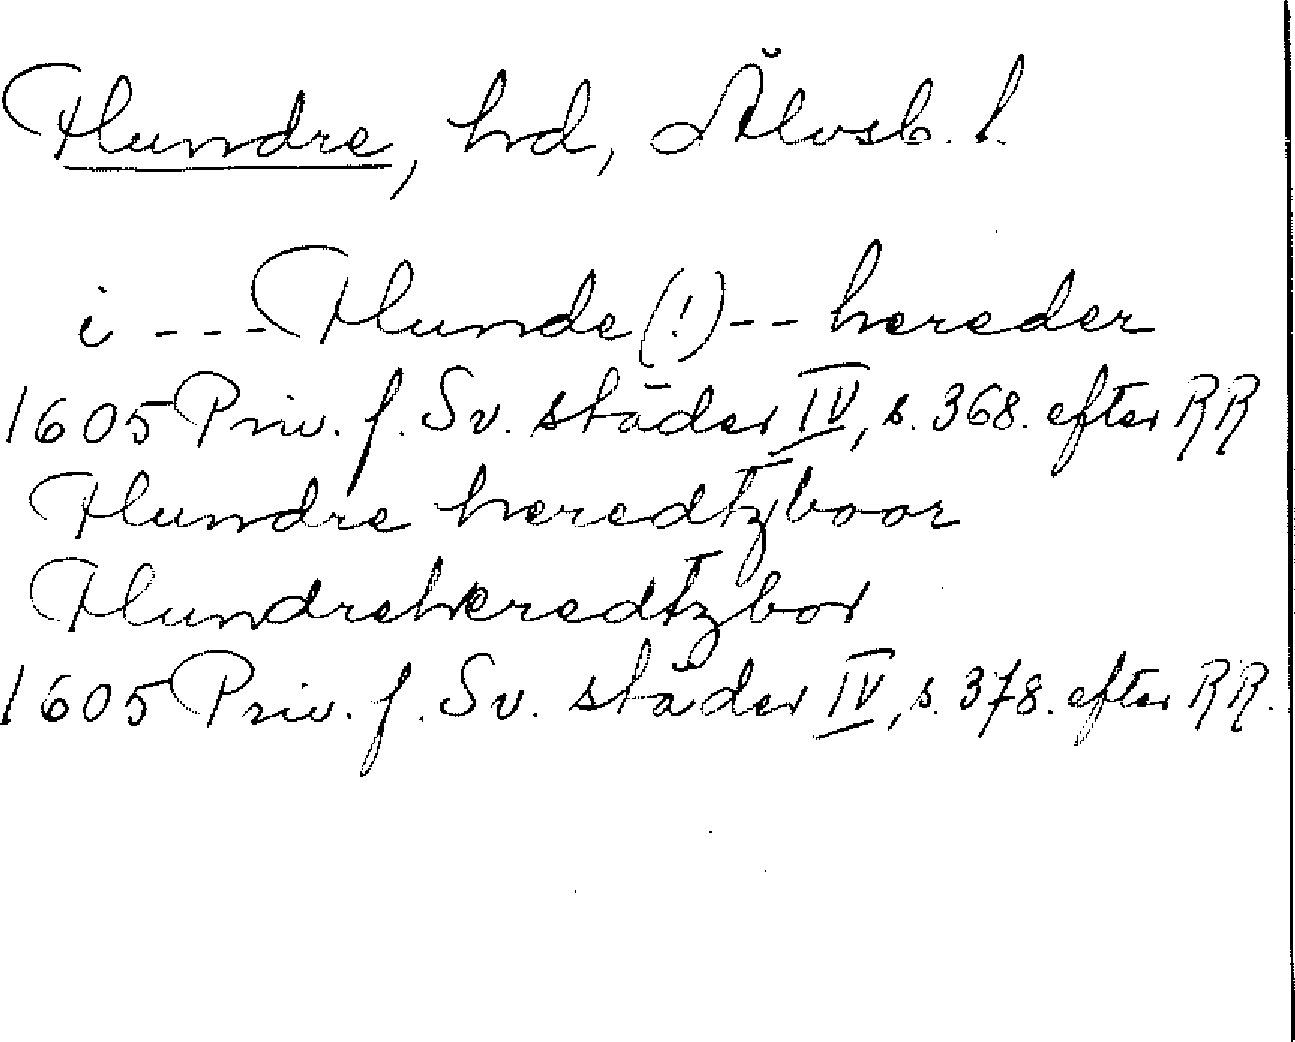 Flundre, hd, Älvsb. l.
i --- Flunde (!) -- hereder
1605 Priv. f. Sv. städer IV, s. 368. efter RR
Flundre heredtzboor
Flundreheredtzbor
1605 Priv. f. Sv. städer IV, s. 378. efter RR.